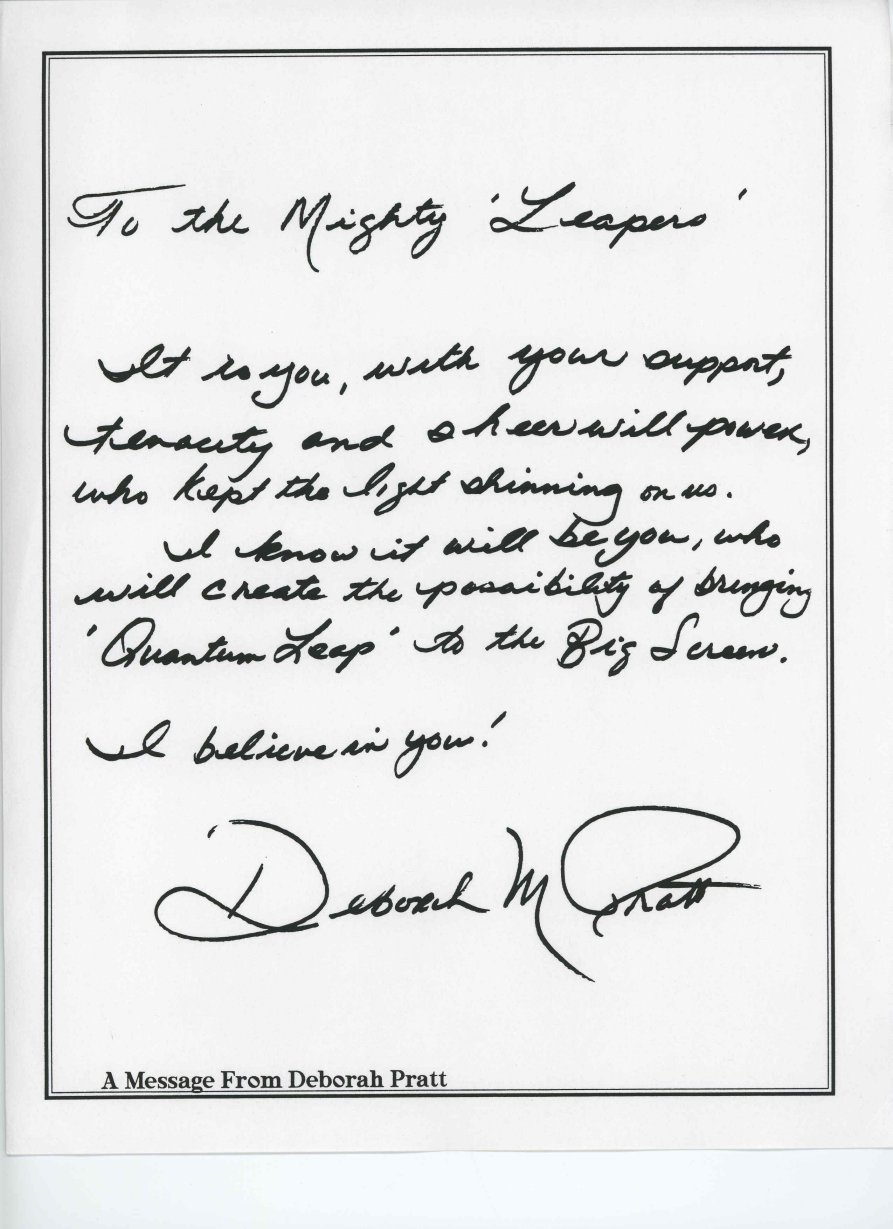 To the Mighty 'Leapers'
It is you, with your support,
tenacity and sheer will power,
who kept the light shinning on us.
I know it will be you, who
will create the possibility of bringing
'Quantum Leap' to the Big Screen.
I believe in you!
Deborah M Pratt
A Message From Deborah Pratt